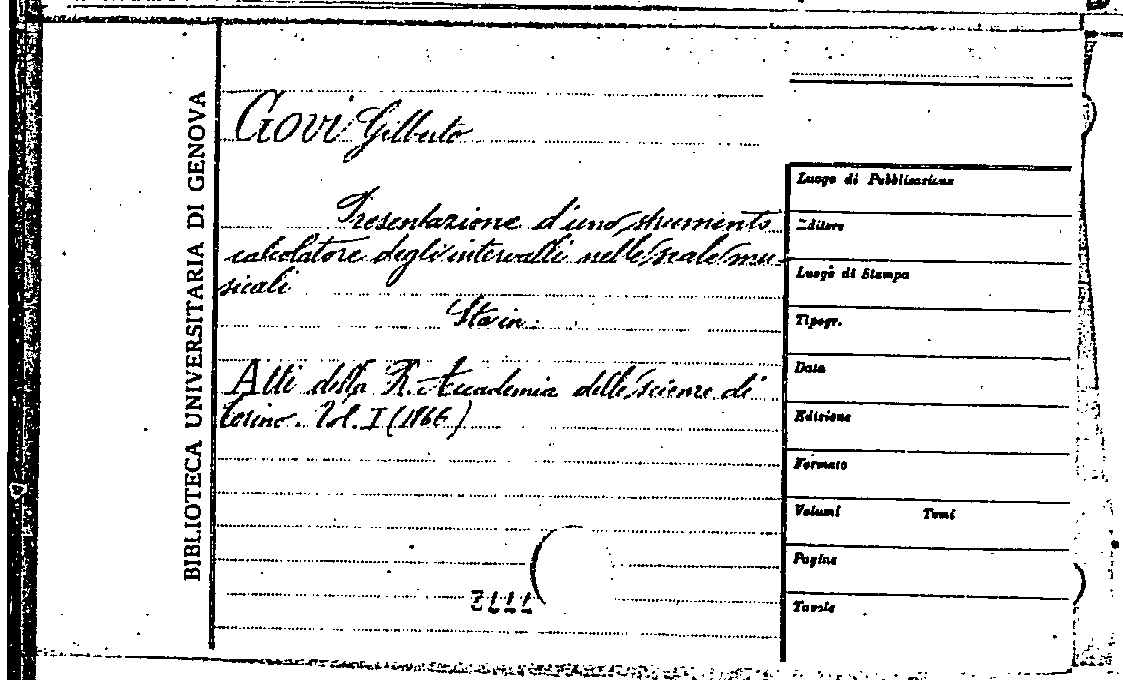 BIBLIOTECA UNIVERSITARIA DI GENOVA
Govi Gilberto
Presentazione d'uno strumento
calcolatore degli intervalli nelle scale mu-
sicali
Sta in:
Atti della R. Accademia delle scienze di
Torino. Vol. I (1866)
Luogo di Pubblicazione
Editore
Luogo di Stampa
Tipogr.
Data
Edizione
Formato
Volumi Tomi
Pagine
Tavole